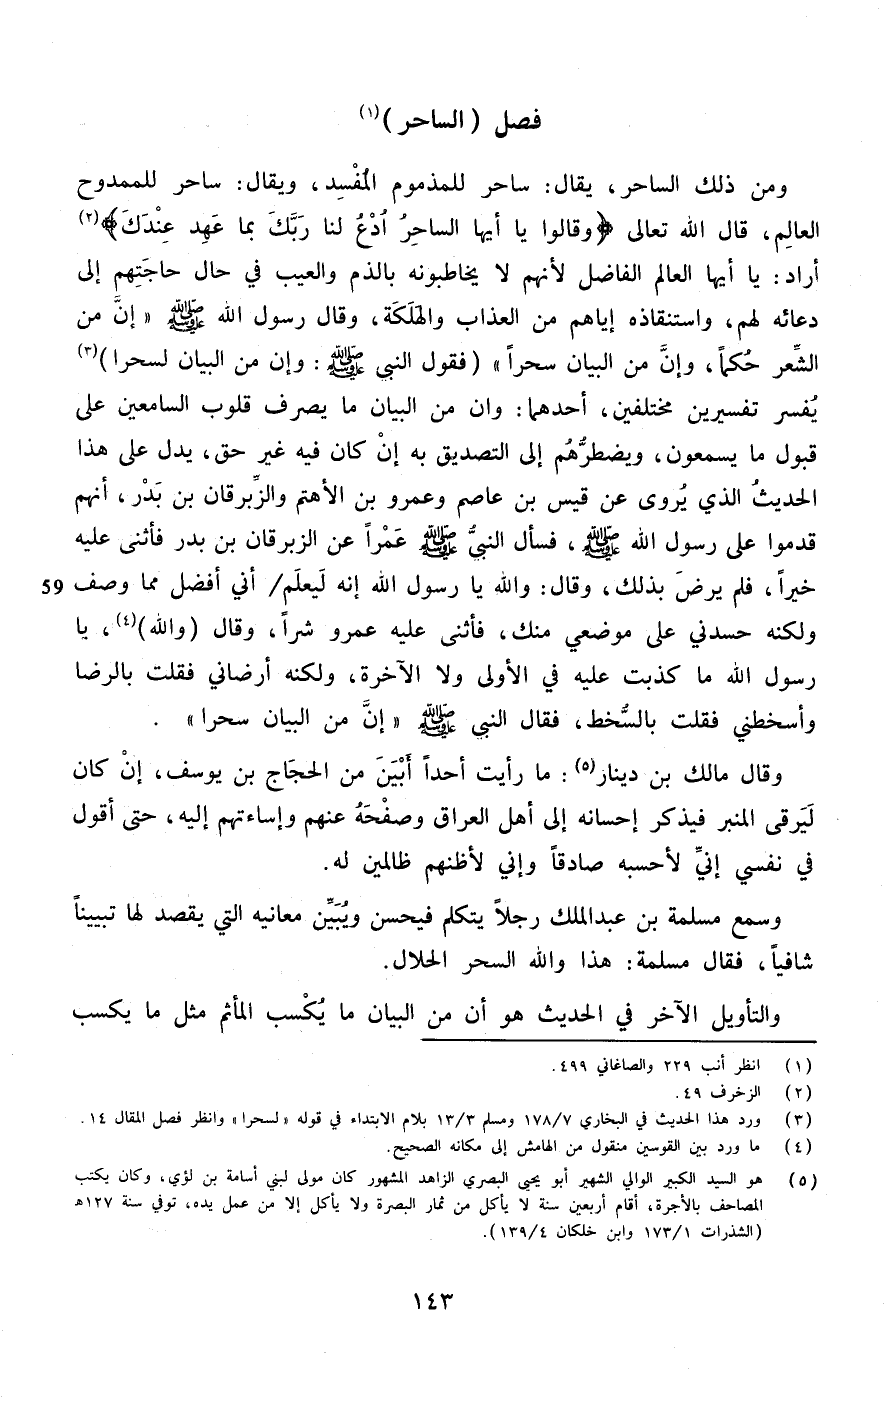 فصل ( الساحر )(١)
ومن ذلك الساحر ، يقال : ساحر للمذموم المُفْسِد ، ويقال : ساحر للممدوح
العالِم ، قال الله تعالى ﴿وقالوا يا أيها الساحِرُ اُدْعُ لنا رَبَّكَ بما عَهِد عِنْدَكَ﴾(٢)
أراد : يا أيها العالم الفاضل لأنهم لا يخاطبونه بالذم والعيب في حال حاجَتِهم إلى
دعائه لهم ، واستنقاذه إياهم من العذاب والهَلَكَة ، وقال رسول الله ﷺ « إنَّ من
الشِّعر حُكماً ، وإنَّ من البيان سحراً » (فقول النبي ﷺ : وإن من البيان لسحرا)(٣)
يُفسر تفسيرين مختلفين ، أحدهما : وان من البيان ما يصرف قلوب السامعين على
قبول ما يسمعون ، ويضطرُّهُم إلى التصديق به إنْ كان فيه غير حق ، يدل على هذا
الحديثُ الذي يُروى عن قيس بن عاصم وعمرو بن الأهتم والزِّبرقان بن بَدْر ، أنهم
قدموا على رسول الله ﷺ ، فسأل النبيُّ ﷺ عَمْراً عن الزبرقان بن بدر فأثنى عليه
خيراً ، فلم يرضَ بذلك ، وقال : والله يا رسول الله إنه لَيعلَم/ أني أفضل مما وصف 59
ولكنه حسدني على موضعي منك ، فأثنى عليه عمرو شراً ، وقال (والله)(٤) ، يا
رسول الله ما كذبت عليه في الأولى ولا الآخرة ، ولكنه أرضاني فقلت بالرضا
وأسخطني فقلت بالسُّخط ، فقال النبي ﷺ « إنَّ من البيان سحرا » .
وقال مالك بن دينار(٥) : ما رأيت أحداً أَبْيَنَ من الحجَاج بن يوسف ، إنْ كان
لَيَرقى المنبر فيذكر إحسانه إلى أهل العراق وصفْحَهُ عنهم وإساءتهم إليه ، حتى أقول
في نفسي إنيِّ لأحسبه صادقاً وإني لأظنهم ظالمين له .
وسمع مسلمة بن عبدالملك رجلاً يتكلم فيحسن ويُبَيِّن معانيه التي يقصد لها تبييناً
شافياً ، فقال مسلمة : هذا والله السحر الحلال .
والتأويل الآخر في الحديث هو أن من البيان ما يُكْسب المأثم مثل ما يكسب
(١) انظر أنب ٢٢٩ والصاغاني ٤٩٩ .
(٢) الزخرف ٤٩ .
(٣) ورد هذا الحديث في البخاري ١٧٨/٧ ومسلم ١٣/٣ بلام الابتداء في قوله «لسحرا» وانظر فصل المقال ١٤ .
(٤) ما ورد بين القوسين منقول من الهامش إلى مكانه الصحيح .
(٥) هو السيد الكبير الوالي الشهير أبو يحيى البصري الزاهد المشهور كان مولى لبني أسامة بن لؤي ، وكان يكتب
المصاحف بالأجرة ، أقام أربعين سنة لا يأكل من ثمار البصرة ولا يأكل إلا من عمل يده ، توفي سنة ١٢٧هـ
(الشذرات ١٧٣/١ وابن خلكان ١٣٩/٤) .
١٤٣